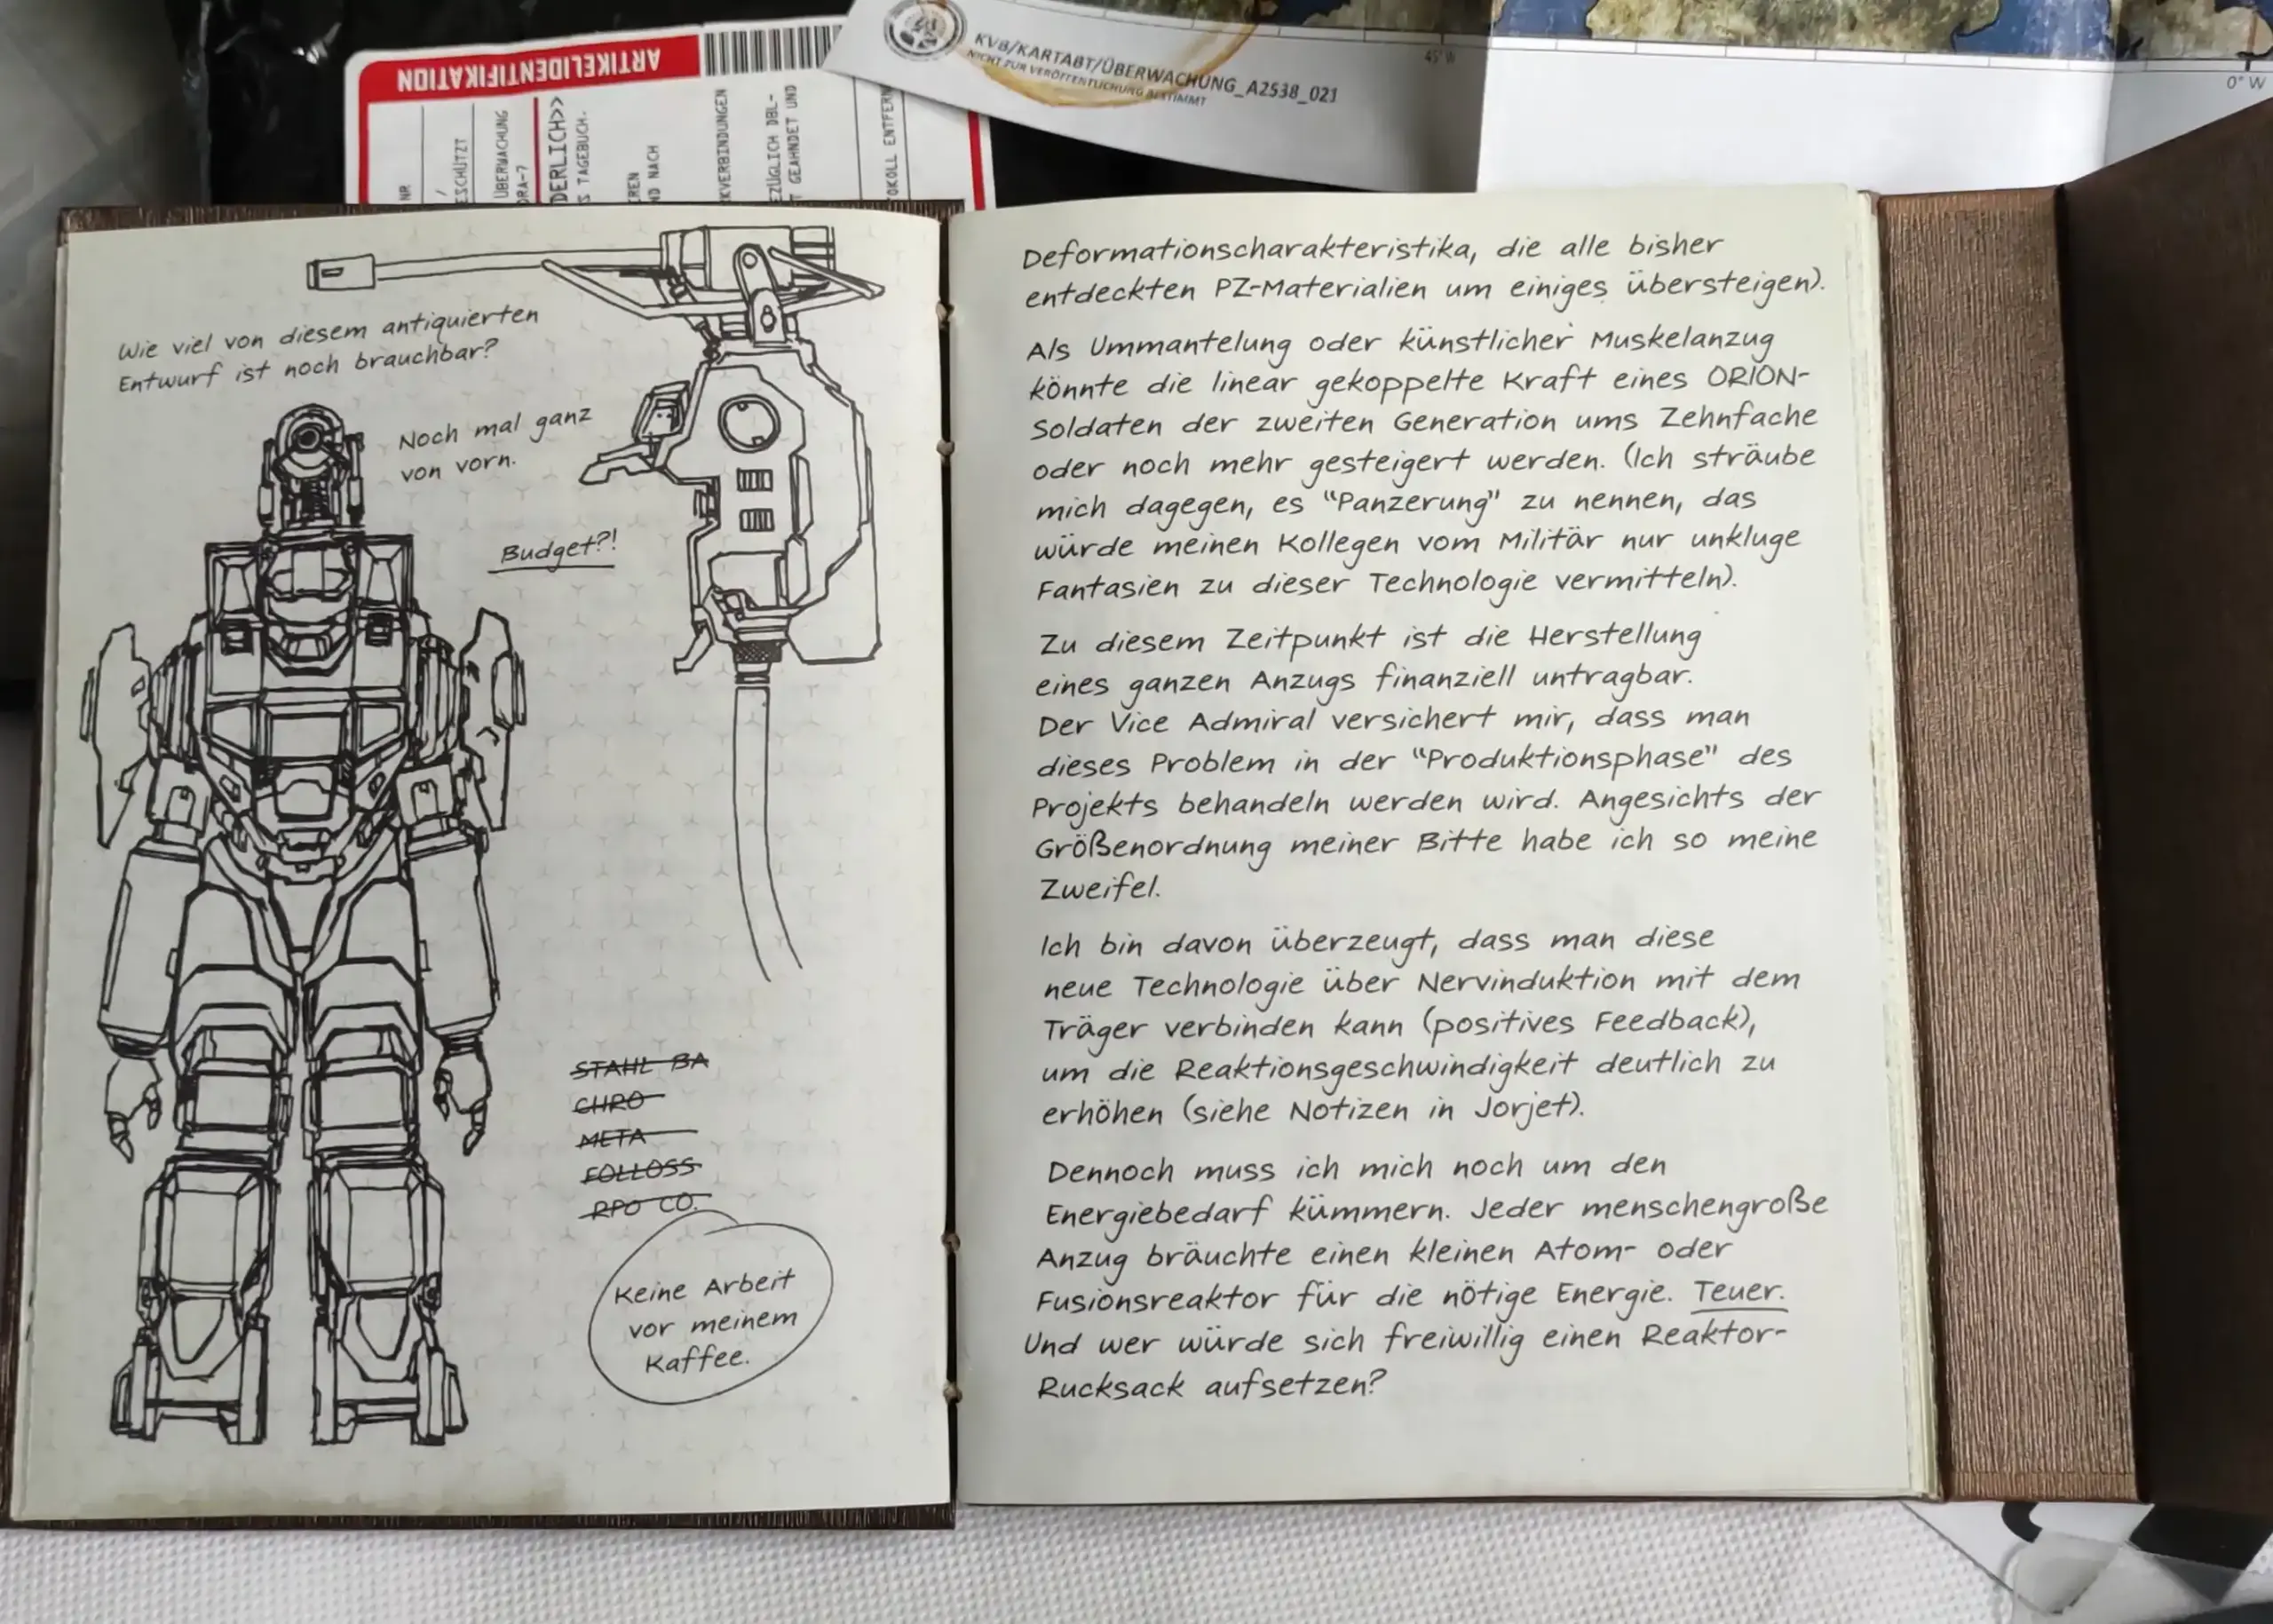 ARTIKELIDENTIFIKATION
NR
/
ESCHÜTZT
ÜBERWACHUNG
DRA-7
DERLICH>>
S TAGEBUCH.
EREN
ND NACH
KVERBINDUNGEN
EZÜGLICH DBL-
T GEAHNDET UND
OKOLL ENTFERN
KVB/KARTABT/ÜBERWACHUNG_A2538_021
NICHT ZUR VERÖFFENTLICHUNG BESTIMMT
45° W
0° W
Wie viel von diesem antiquierten
Entwurf ist noch brauchbar?
Noch mal ganz
von vorn.
Budget?!
STAHL BA
CHRO
META
FOLLOSS
RPO CO.
Keine Arbeit
vor meinem
Kaffee.
Deformationscharakteristika, die alle bisher
entdeckten PZ-Materialien um einiges übersteigen).
Als Ummantelung oder künstlicher Muskelanzug
könnte die linear gekoppelte Kraft eines ORION-
Soldaten der zweiten Generation ums Zehnfache
oder noch mehr gesteigert werden. (Ich sträube
mich dagegen, es "Panzerung" zu nennen, das
würde meinen Kollegen vom Militär nur unkluge
Fantasien zu dieser Technologie vermitteln).
Zu diesem Zeitpunkt ist die Herstellung
eines ganzen Anzugs finanziell untragbar.
Der Vice Admiral versichert mir, dass man
dieses Problem in der "Produktionsphase" des
Projekts behandeln werden wird. Angesichts der
Größenordnung meiner Bitte habe ich so meine
Zweifel.
Ich bin davon überzeugt, dass man diese
neue Technologie über Nervinduktion mit dem
Träger verbinden kann (positives Feedback),
um die Reaktionsgeschwindigkeit deutlich zu
erhöhen (siehe Notizen in Jorjet).
Dennoch muss ich mich noch um den
Energiebedarf kümmern. Jeder menschengroße
Anzug bräuchte einen kleinen Atom- oder
Fusionsreaktor für die nötige Energie. Teuer.
Und wer würde sich freiwillig einen Reaktor-
Rucksack aufsetzen?